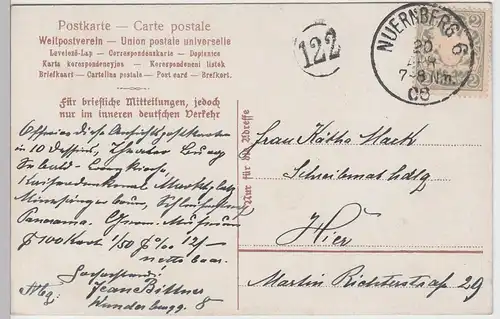 Postkarte — Carte postale
Weltpostverein — Union postale universelle
Levelező-Lap — Correspondenzkarte — Dopisnice
Karta korespondencyjna — Korespondenční lístek
Briefkaart — Cartolina postale — Post card — Brefkort.
Für briefliche Mitteilungen, jedoch
nur im inneren deutschen Verkehr
Nur für die Adresse
122
NUERNBERG 6
20
APR
7-8 Nm.
08
2
2
Offeriere diese Ansichtspostkarten
in 10 Dessins, Theater Burg
Sebald-
Kaiserdenkmal Marktplatz
Panorama Germ. Museum
100 Kart 1/50 12/-
netto baar.
Hochachtend
Jean Bittner
8
Frau Kätha Mack
Schreibmat hdlg
Hier
Martin Richterstraße 29